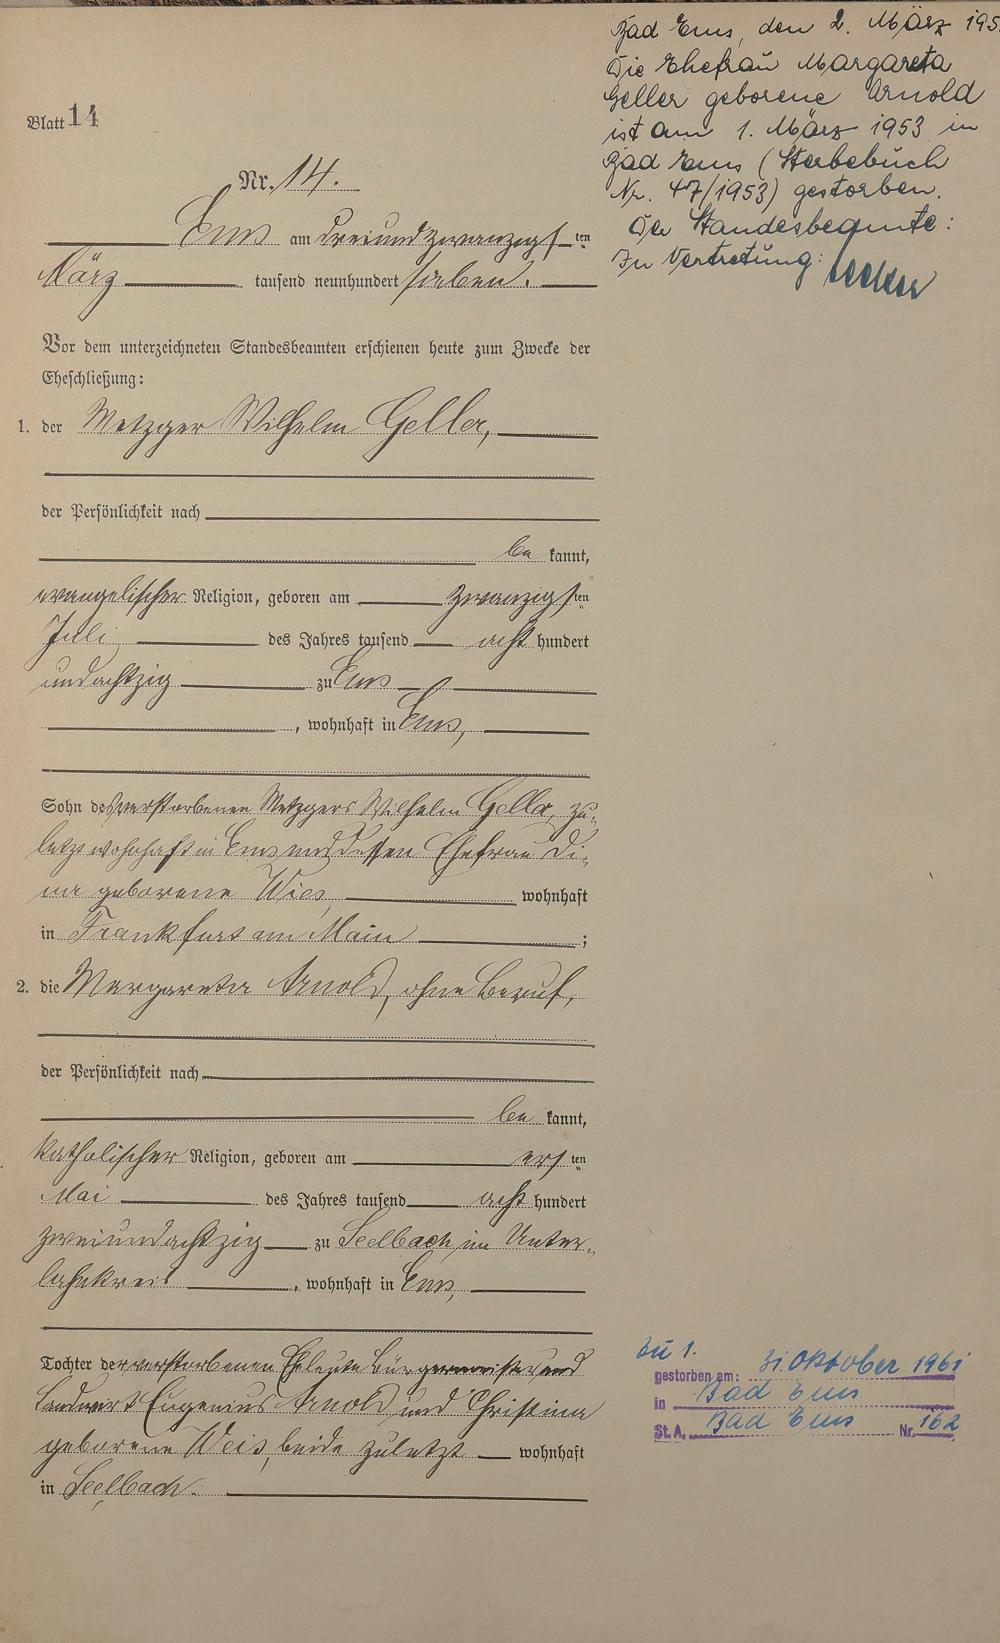 Blatt 14
Nr. 14.
Ems am dreiundzwanzigsten
März tausend neunhundert sieben.
Vor dem unterzeichneten Standesbeamten erschienen heute zum Zwecke der
Eheschließung:
1. der Metzger Wilhelm Geller,
der Persönlichkeit nach
be kannt,
evangelischer Religion, geboren am zwanzigsten
Juli des Jahres tausend acht hundert
undachtzig zu Ems
, wohnhaft in Ems,
Sohn des verstorbenen Metzgers Wilhelm Geller, zu-
letzt wohnhaft in Ems und dessen Ehefrau Di-
na geborene Wies, wohnhaft
in Frankfurt am Main ;
2. die Margareta Arnold, ohne Beruf,
der Persönlichkeit nach
be kannt,
katholischer Religion, geboren am ersten
Mai des Jahres tausend acht hundert
zweiundachtzig zu Seelbach im Unter-
lahnkreis , wohnhaft in Ems,
Tochter der verstorbenen Eheleute Bürgermeister und
Landwirt Eugenius Arnold und Christina
geborene Weis, beide zuletzt wohnhaft
in Seelbach.
Bad Ems, den 2. März 195
Die Ehefrau Margareta
Geller geborene Arnold
ist am 1. März 1953 in
Bad Ems (Sterbebuch
Nr. 47/1953) gestorben.
Der Standesbeamte:
In Vertretung:
zu 1.
gestorben am: 31. Oktober 1961
in Bad Ems
St.A. Bad Ems Nr. 162